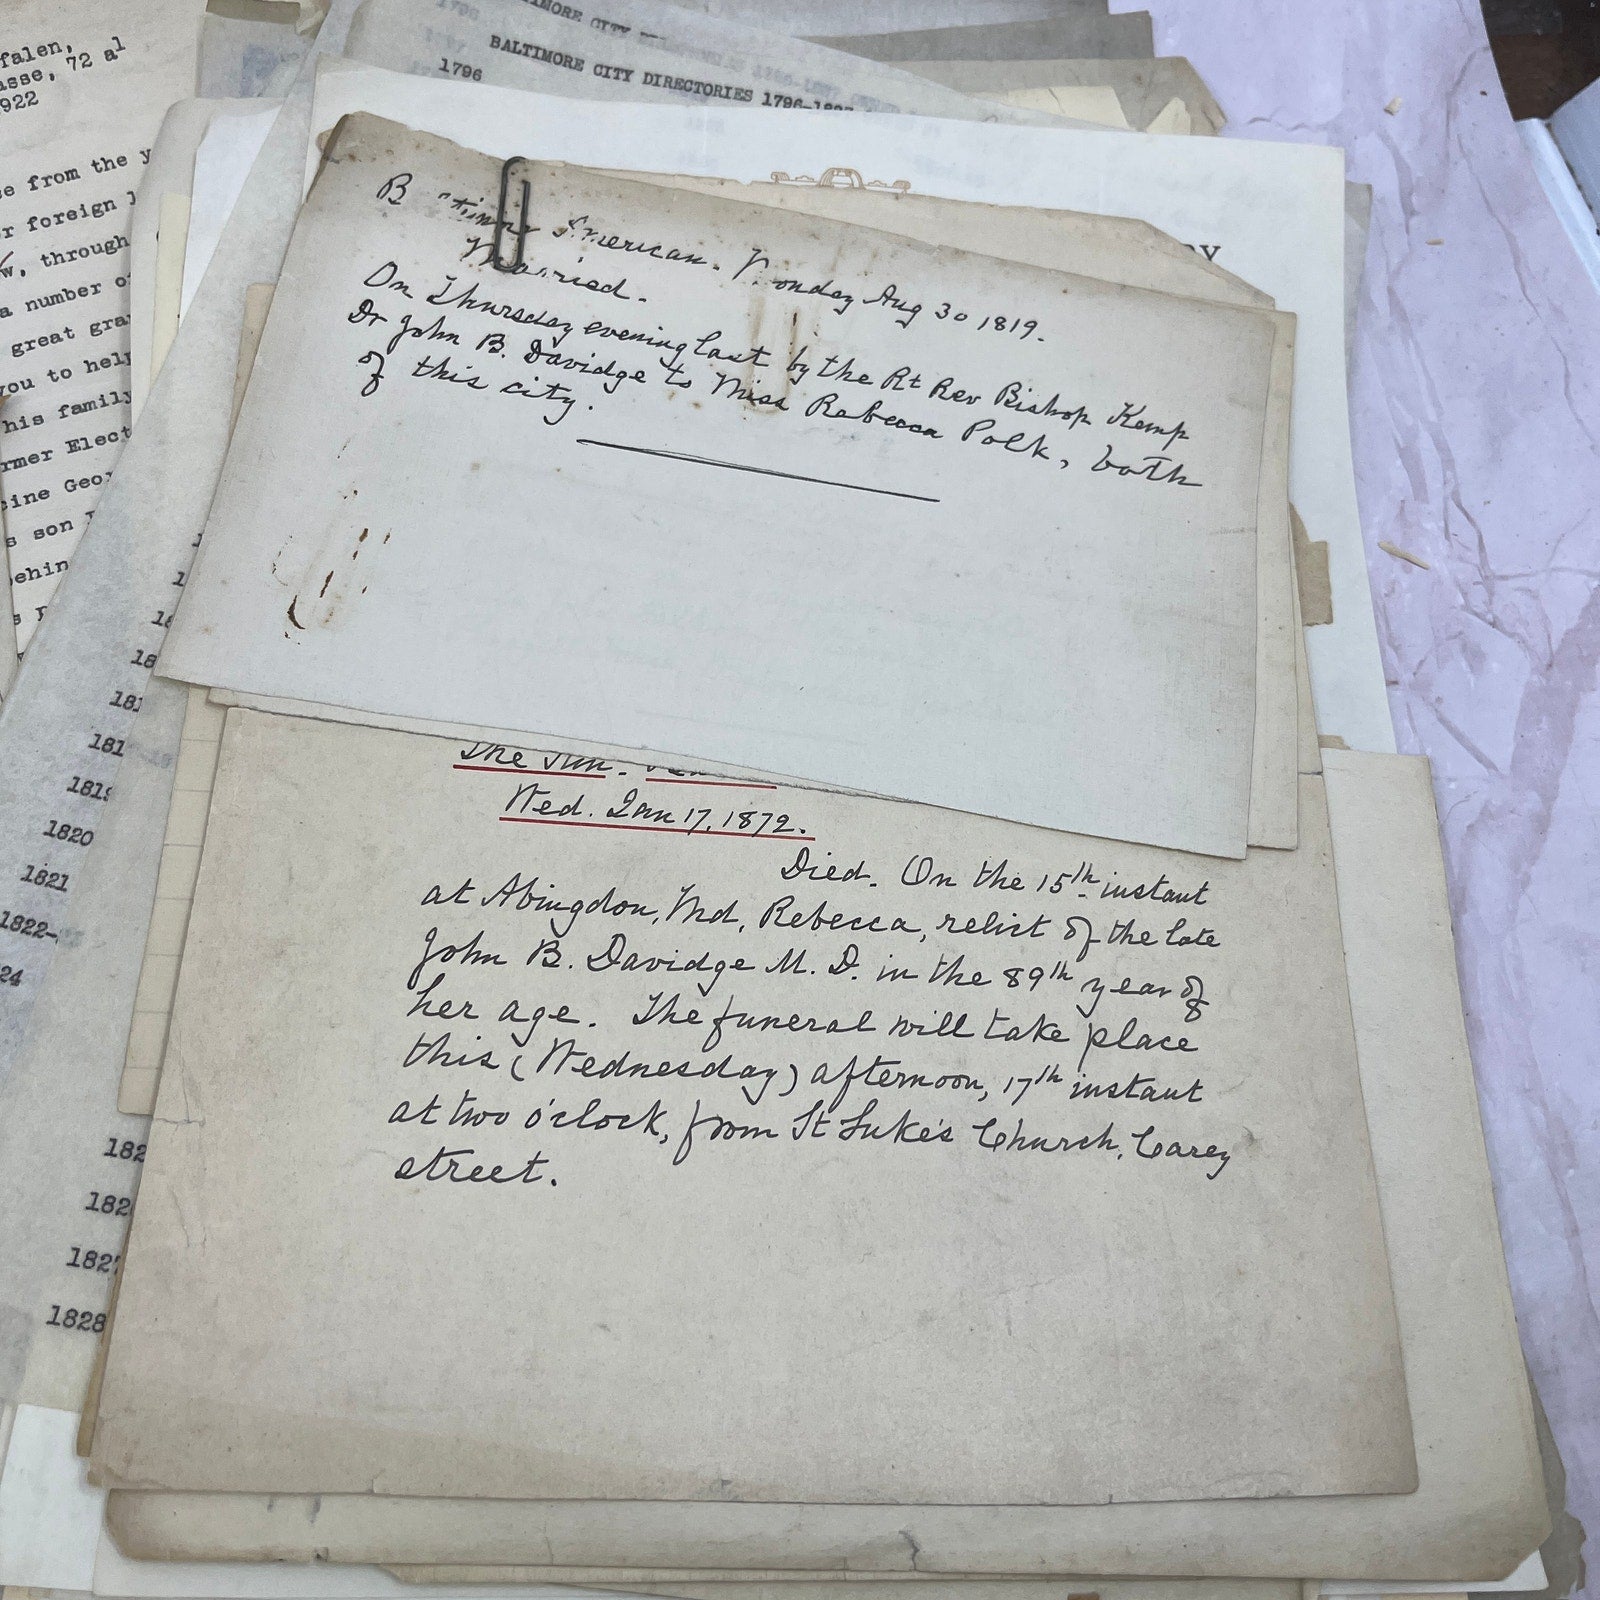 falen,
asse, 72 a1
922
se from the y
r foreign
w, through
a number o
great gra
you to help
his family
rmer Elect
cine Geor
s son
behin
BALTIMORE CITY DIRECTORIES 1796-
1796
181
181
1819
1820
1821
1822-
24
182
182
1827
1828
American. Monday Aug 30 1819.
Married.
On Thursday evening last by the Rt Rev Bishop Kemp
Dr John B. Davidge to Miss Rebecca Polk, both
of this city.
The Sun.
Wed. Jan 17, 1872.
Died. On the 15th instant
at Abingdon, Md, Rebecca, relict of the late
John B. Davidge M. D. in the 89th year of
her age. The funeral will take place
this (Wednesday) afternoon, 17th instant
at two o'clock, from St Luke's Church, Carey
street.